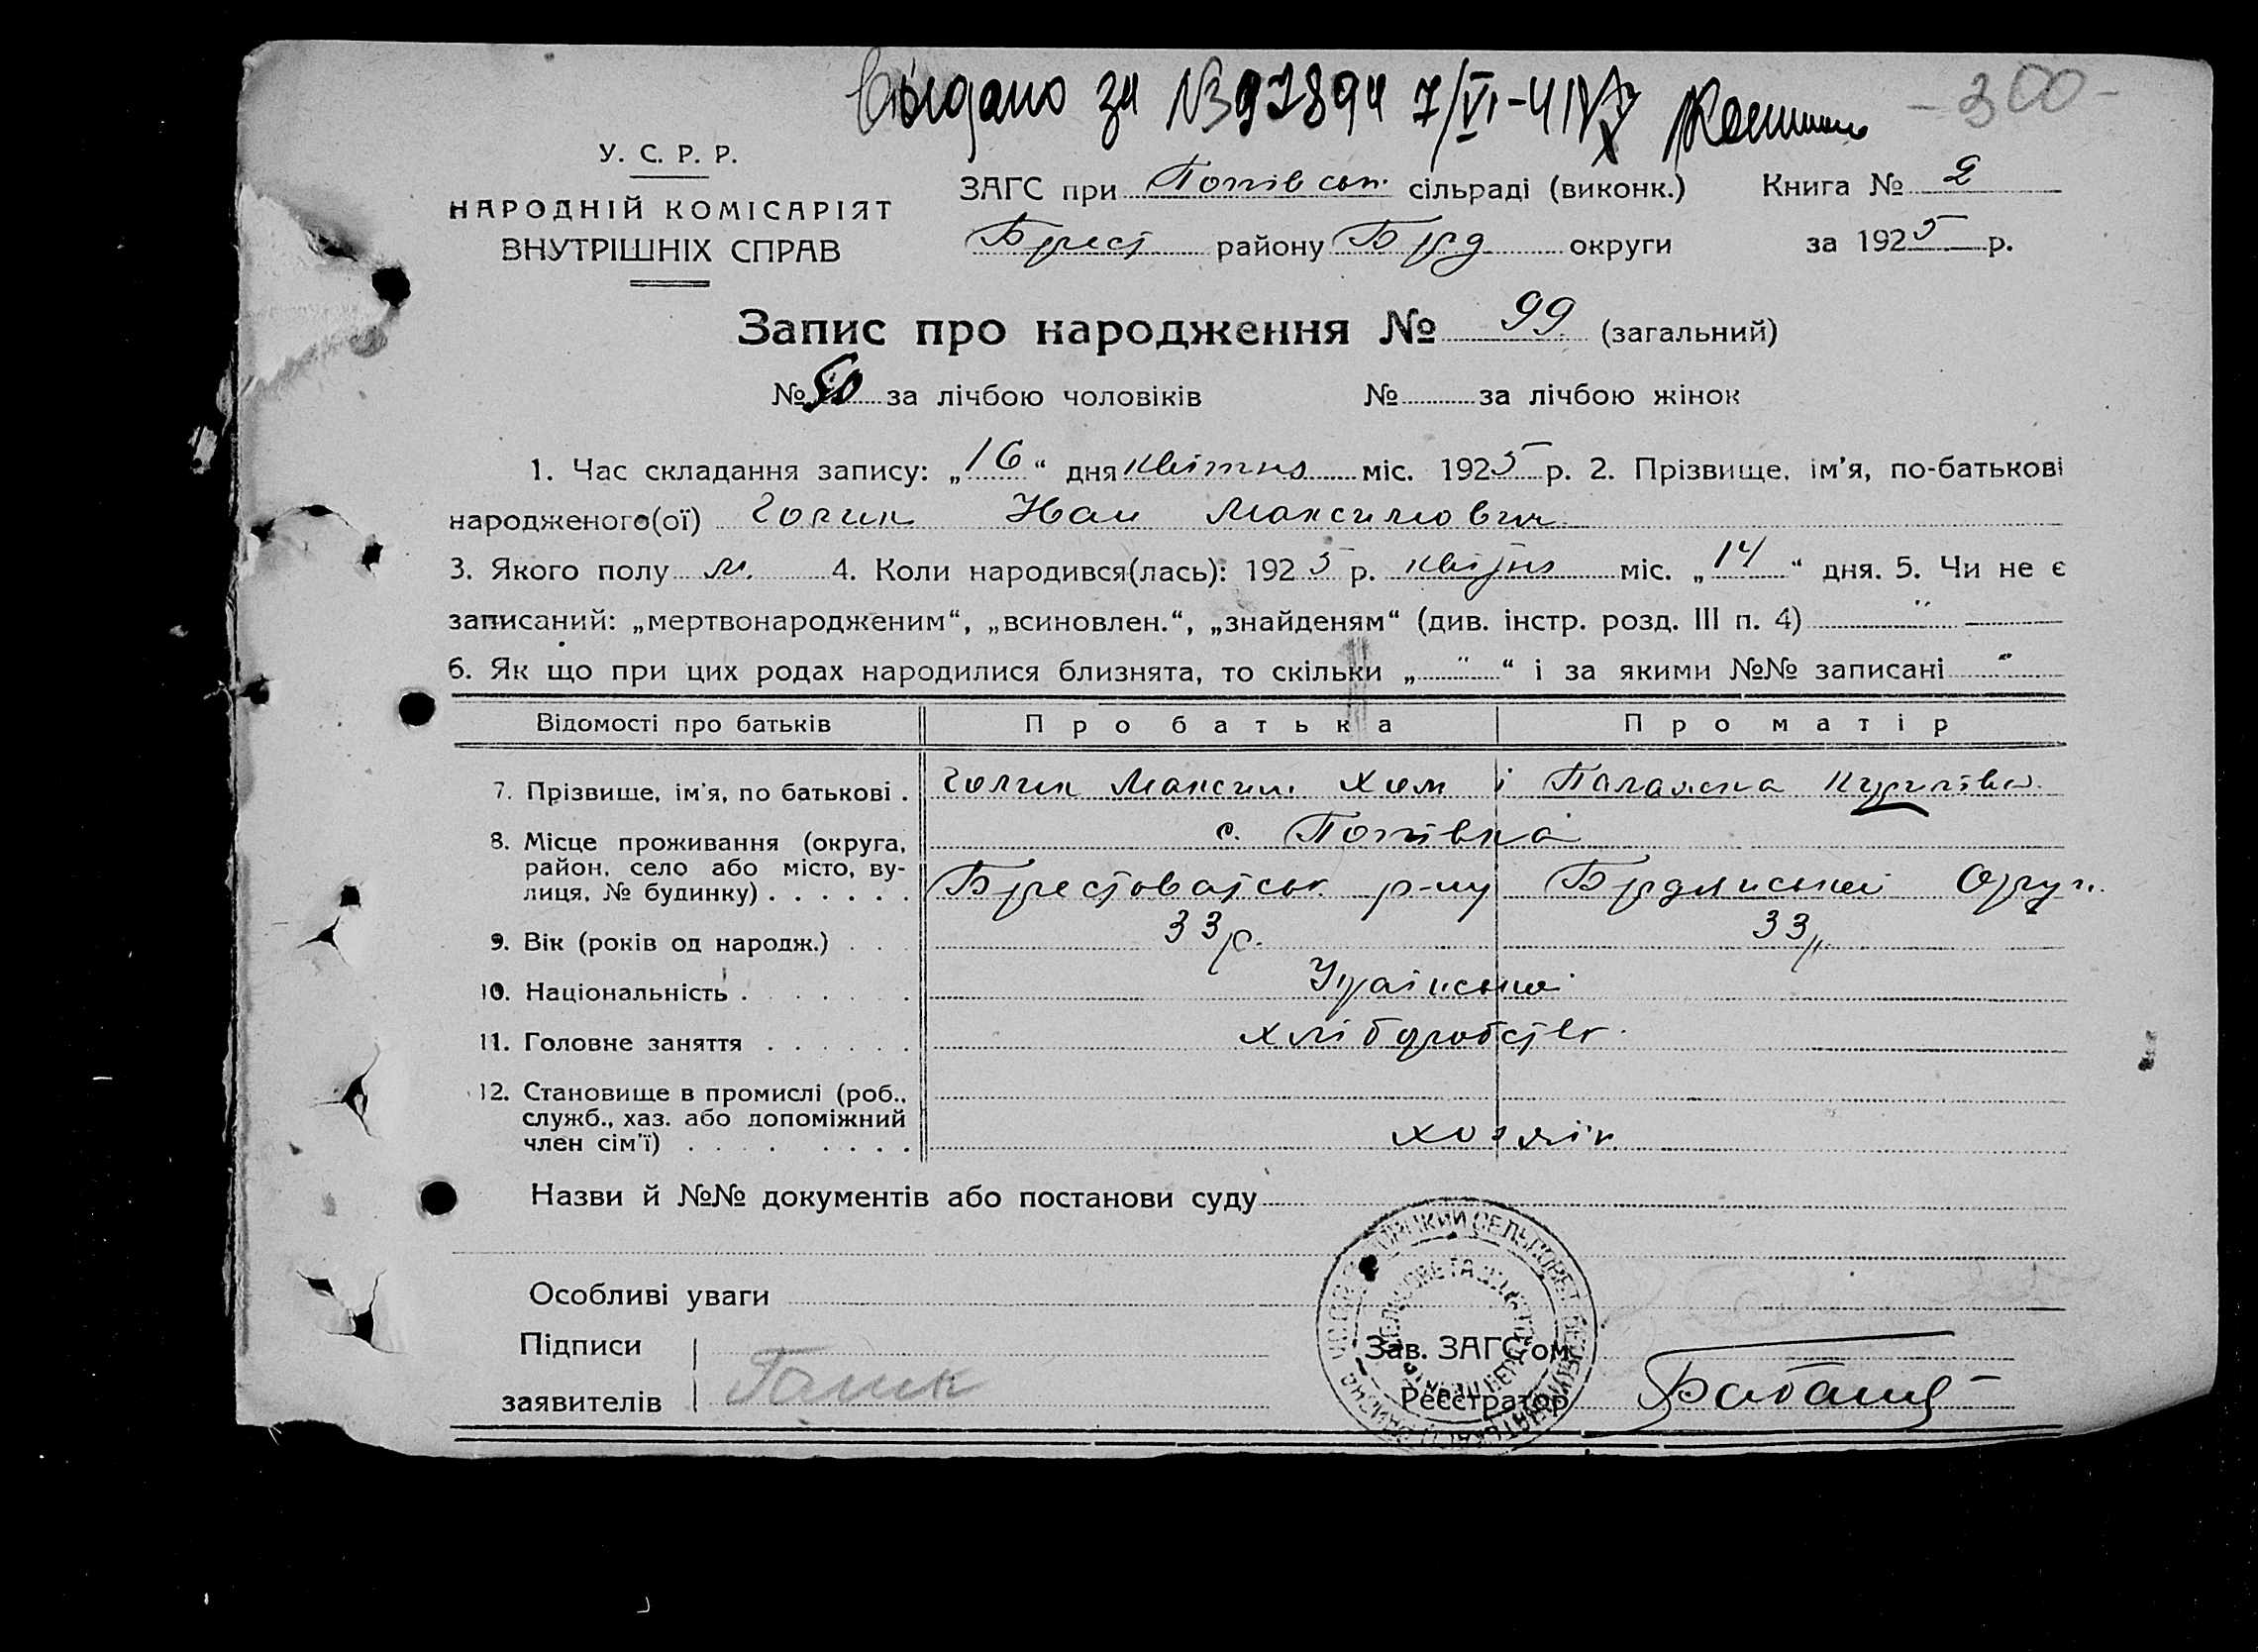 Выдано за №3 97894 7/VI-41
-300-
У. С. Р. Р.
НАРОДНІЙ КОМІСАРІЯТ
ВНУТРІШНІХ СПРАВ
ЗАГС при Попівськ. сільраді (виконк.) Книга № 2
Брест району Брд округи за 1925 р.
Запис про народження № 99 (загальний)
№ 50 за лічбою чоловіків № за лічбою жінок
1. Час складання запису: „16“ дня квітня міс. 1925 р. 2. Прізвище, ім'я, по-батькові
народженого(ої) Голик Іван Максимович
3. Якого полу м. 4. Коли народився(лась): 1925 р. квітня міс. „14“ дня. 5. Чи не є
записаний: „мертвонародженим“, „всиновлен.“, „знайденям“ (див. інстр. розд. III п. 4) "
6. Як що при цих родах народилися близнята, то скільки „ " “ і за якими №№ записані "
Відомості про батьків Про батька Про матір
7. Прізвище, ім'я, по батькові . Голик Максим Хом і Палажка
8. Місце проживання (округа, с. Попівка
район, село або місто, ву-
лиця, № будинку) . . . . . . Брестоватськ р-ну Бердянської Округ.
9. Вік (років од народж.) . . 33 р. 33 „
10. Національність . . . . . . Українській
11. Головне заняття . . . . . . хліборобств.
12. Становище в промислі (роб.,
служб., хаз. або допоміжний
член сім'ї) . . . . . . . . хозяїн
Назви й №№ документів або постанови суду
Особливі уваги
Підписи
заявителів Голик
Зав. ЗАГС'ом
Реєстратор